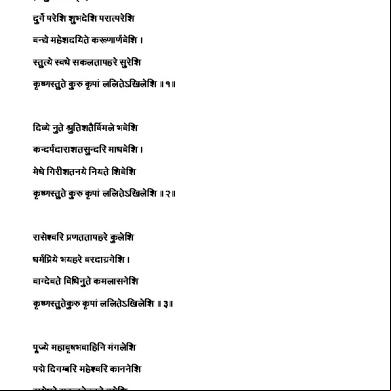 दुर्गे परेशि शुभदेशि परात्परेशि
वन्द्ये महेशदयिते करूणार्णवेशि ।
स्तुत्ये स्वधे सकलतापहरे सुरेशि
कृष्णस्तुते कुरु कृपां ललितेऽखिलेशि ॥१॥
दिव्ये नुते श्रुतिशतैर्विमले भवेशि
कन्दर्पदाराशतसुन्दरि माधवेशि ।
मेधे गिरीशतनये नियते शिवेशि
कृष्णस्तुते कुरु कृपां ललितेऽखिलेशि ॥२॥
रासेश्वरि प्रणततापहरे कुलेशि
धर्मप्रिये भयहरे वरदाग्रगेशि ।
वाग्देवते विधिनुते कमलासनेशि
कृष्णस्तुतेकुरु कृपां ललितेऽखिलेशि ॥३॥
पूज्ये महावृषभवाहिनि मंगलेशि
पद्मे दिगम्बरि महेश्वरि काननेशि